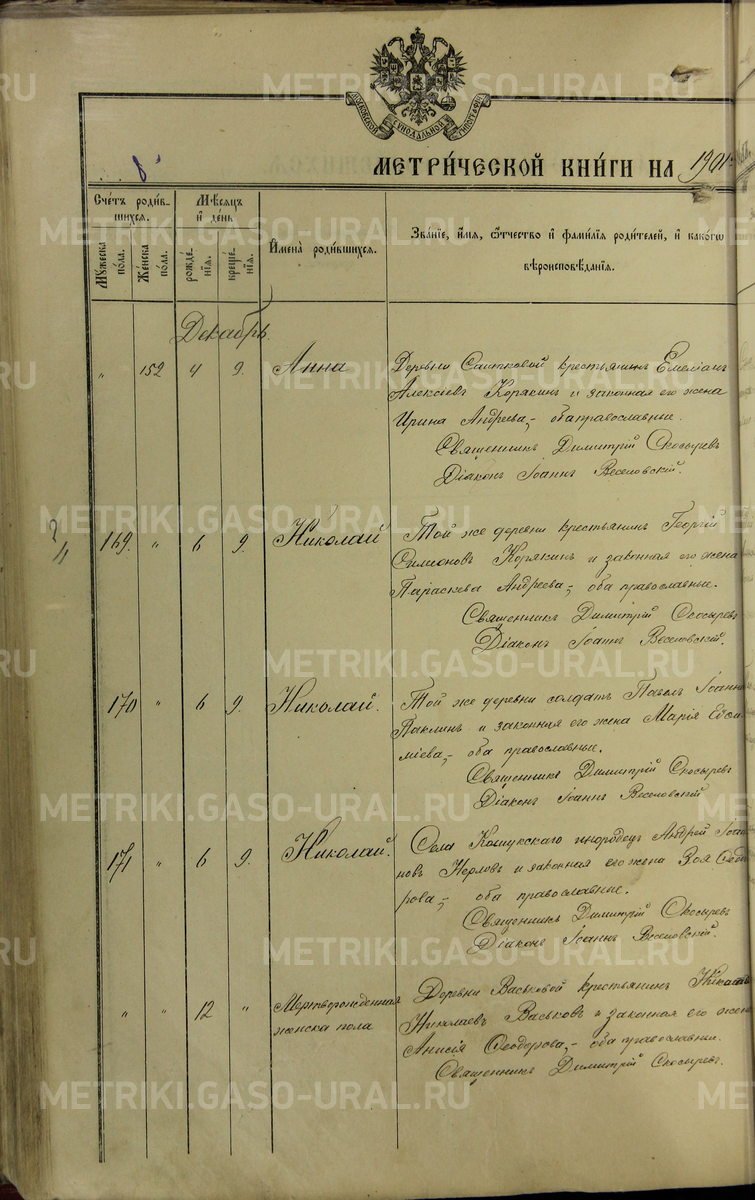 МОСКОВСКОЙ СУНОДАЛЬНОЙ ТИПОГРАФІИ
МЕТРИ́ЧЕСКОЙ КНИ́ГИ НА 1901
8
Сче́тъ роди́вшихся.
Мѣ́сяцъ и де́нь
Имена̀ роди́вшихся.
Зва́ніе, и́мя, ѻ҆́тчество и фами́лія роди́телей, и како́гѡ
вѣроисповѣ́данія.
Му́жеска по́ла.
Же́нска по́ла.
рожде́нія.
креще́нія.
Декабрь.
„ 152 4 9. Анна
Деревни Саитковой крестьянинъ Емеліанъ
Алексіевъ Корякинъ и законная его жена
Ирина Андреева,- оба православные.
Священникъ Димитрій Скосыревъ
Діаконъ Іоаннъ Веселовскій.
169. „ 6 9. Николай
Той же деревни крестьянинъ Георгій
Симеоновъ Корякинъ и законная его жена
Параскева Андреева,- оба православные.
Священникъ Димитрій Скосыревъ
Діаконъ Іоаннъ Веселовскій.
170 „ 6 9. Николай.
Той же деревни солдатъ Павелъ Іоанн
Паклинъ и законная его жена Марія Евѳи
міева,- оба православные.
Священникъ Димитрій Скосыревъ
Діаконъ Іоаннъ Веселовскій
171 „ 6 9. Николай.
Села Кошукскаго инородецъ Андрей Іоан
новъ и законная его жена Зоя Ѳедо
рова,- оба православные.
Священникъ Димитрій Скосыревъ
Діаконъ Іоаннъ Веселовскій.
„ „ 12 „ Мертворожденная
женска пола
Деревни Васьковой крестьянинъ
Николаевъ Васьковъ и законная его жена
Анисія Ѳеодорова,- оба православные.
Священникъ Димитрій Скосыревъ.
METRIKI.GASO-URAL.RU